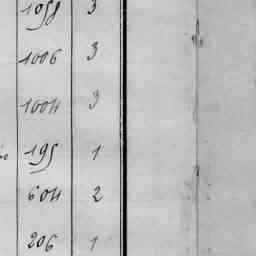 1058 3
1006 3
1004 3
195 1
604 2
206 1